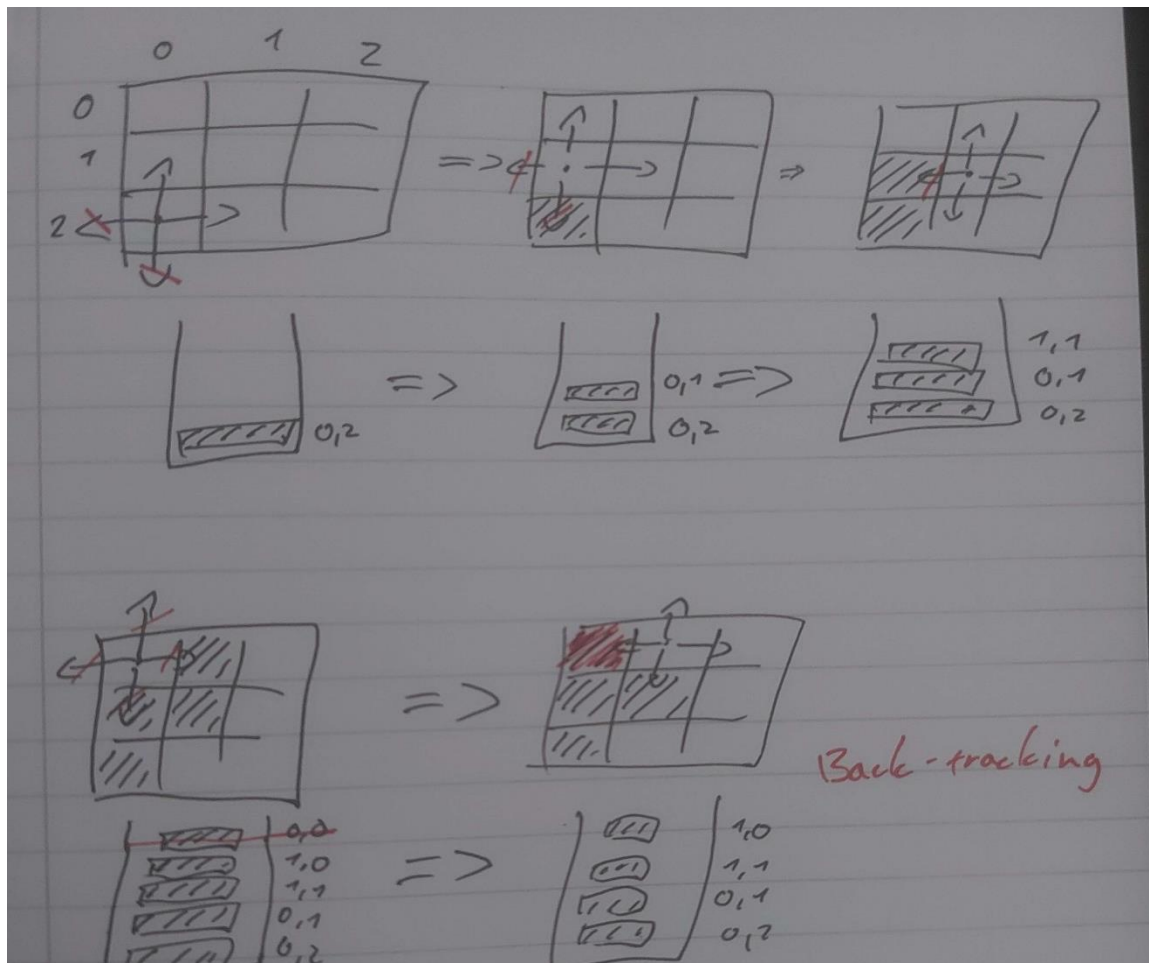 0 1 2
0
1
2
=> =>
0,2
=>
0,1
0,2
=>
1,1
0,1
0,2
=>
Back-tracking
0,0
1,0
1,1
0,1
0,2
=>
1,0
1,1
0,1
0,2